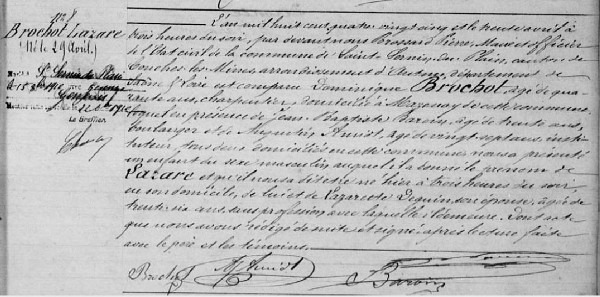 Brochot Lazare
L'an mil huit cent quatre vingt cinq et le trente avril à
trois heures du soir, par devant nous Brossard Pierre, Maire et officier
de l'Etat civil de la commune de Sainte Sernin du Plain, canton de
Couches les Mines arrondissement d'Autun, département de
Saône et Loire est comparu Dominique Brochot, âgé de qua-
rante ans, charpentier, domicilié à Mazenay de cette commune,
lequel en présence de Jean Baptiste Baroin, âgé de trente ans,
boulanger et de Augustin Amiot, âgé de vingt sept ans, insti-
tuteur, tous deux domiciliés en cette commune, nous a présenté
un enfant du sexe masculin auquel il a donné le prénom de
Lazare et qu'il nous a dit être né hier à trois heures du soir,
en son domicile, de lui et de Lazarette Seguin son épouse, âgée de
trente six ans, sans profession avec laquelle il demeure. Dont acte
que nous avons rédigé de suite et signé, après lecture faite
avec le père et les témoins.
Brochot Amiot Baroin